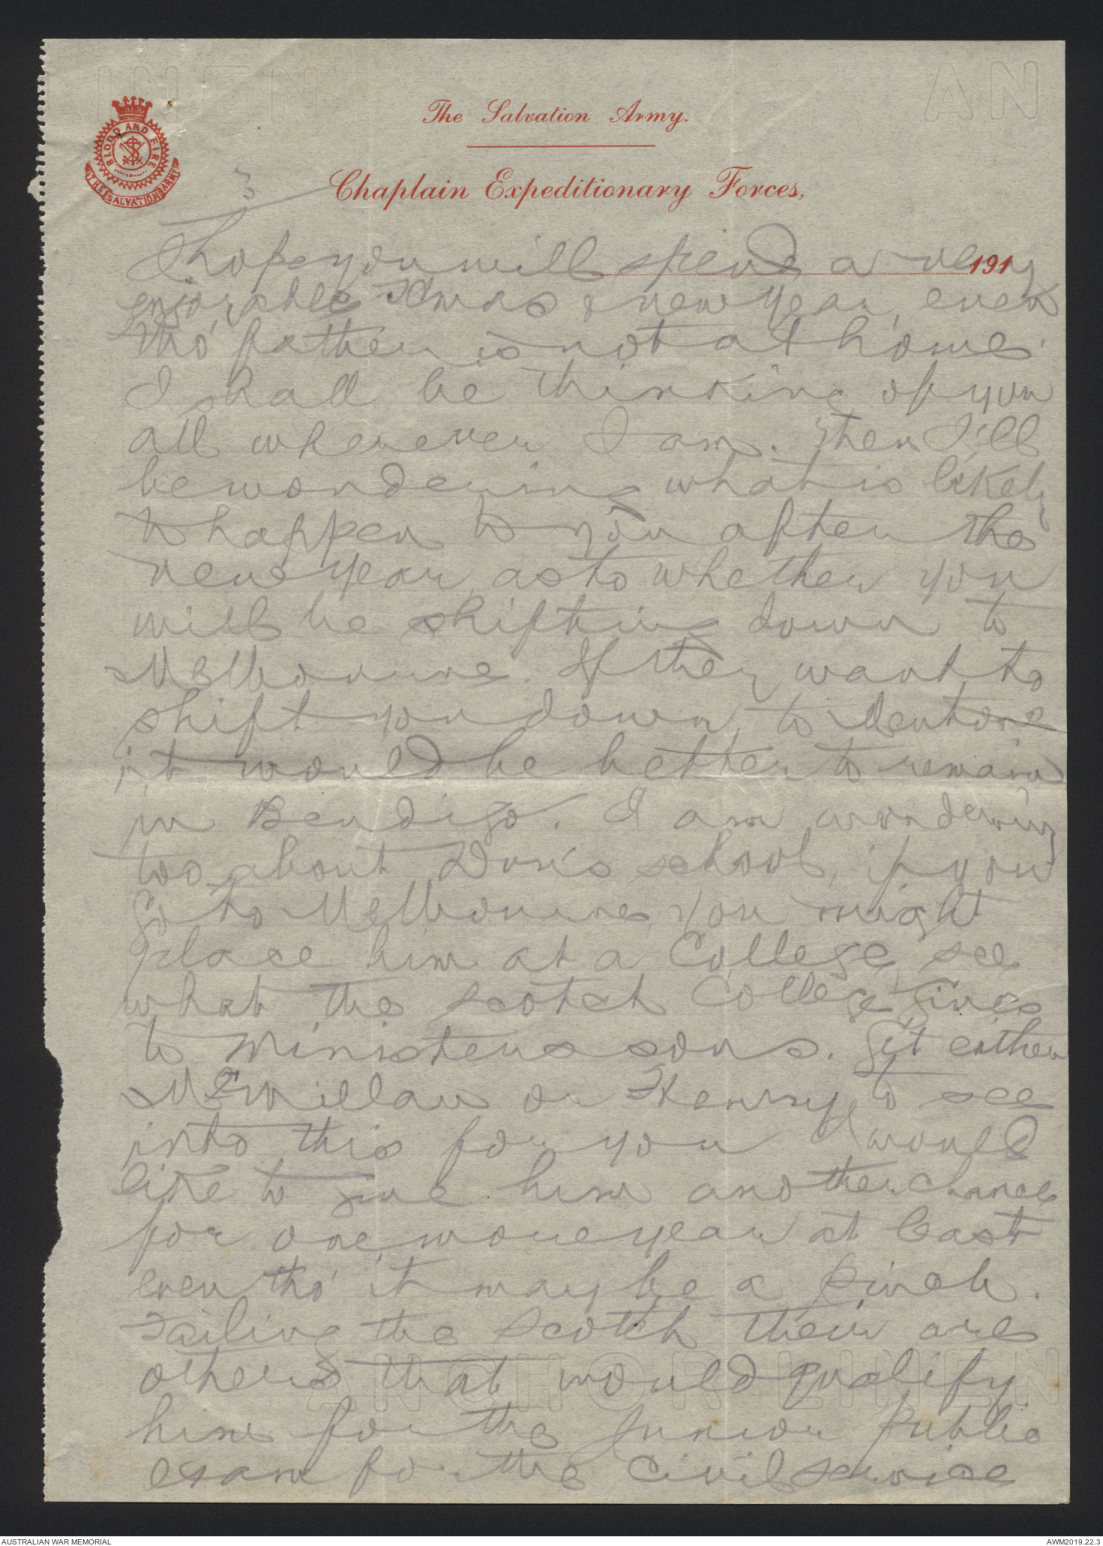 The Salvation Army.
Chaplain Expeditionary Forces,
BLOOD AND FIRE
THE SALVATION ARMY
3
191
I hope you will spend a very
enjoyable Xmas & new Year, even
tho' father is not at home.
I shall be thinking of you
all wherever I am. Then I'll
be wondering what is likely
to happen to you after the
new Year, as to whether you
will be shifting down to
Melbourne. If they want to
shift you down to Mentone
it would be better to remain
in Bendigo. I am wondering
too about Don's school, if you
go to Melbourne, you might
place him at a College, see
what the Scotch College gives
to Ministers sons. Git either
McMillan or Henry to see
into this for you I would
like to give him another chance
for one more year at least
even tho' it may be a pinch.
Failing the Scotch their are
others that would qualify
him for the Junior Public
exam for the Civil Service
ANCHOR LINEN
AUSTRALIAN WAR MEMORIAL
AWM2019.22.3